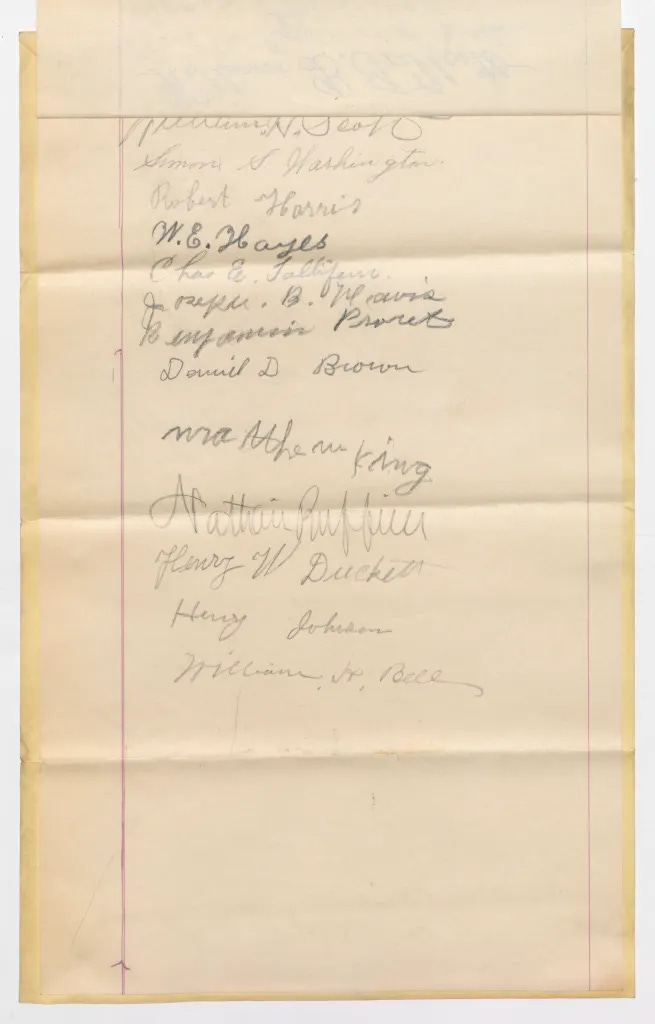 William H. Scott
Simon S Washington.
Robert Harris
W. E. Hayes
Chas E.
Joseph. B. Mavis
Benjamin
Daniel D Brown
King
Nathan Ruffin
Henry W Duckett
Henry Johnson
William. H. Bell